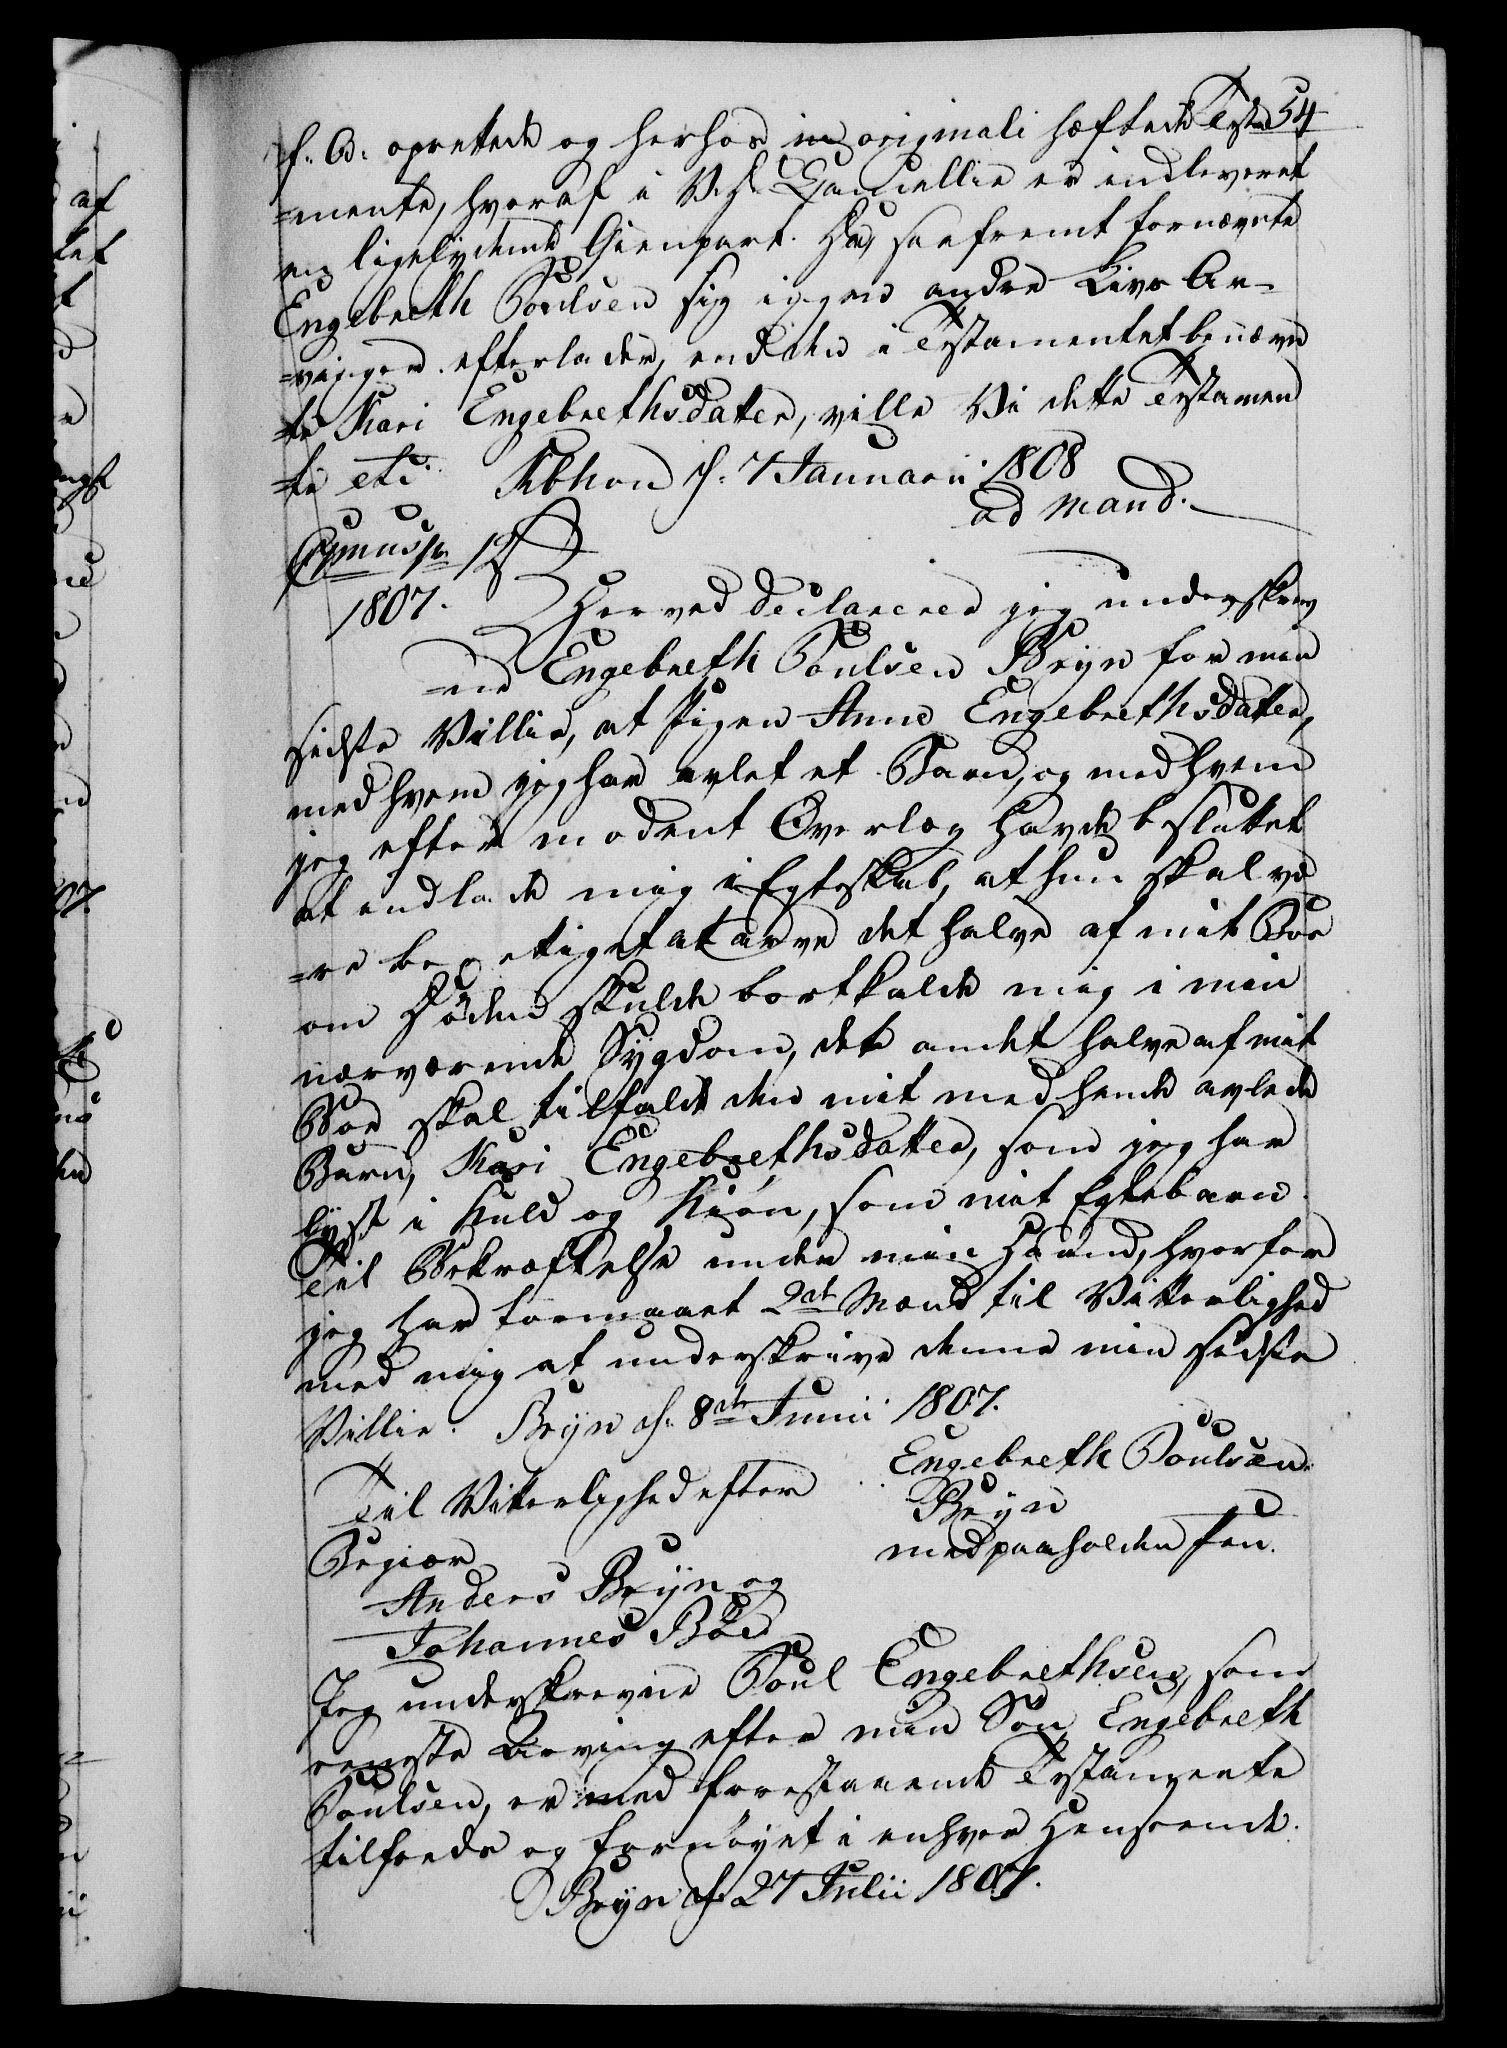 54
f: A: oprettede og herhos in originali hæftede Testa
=mente, hvoraf i V. D. Cancellie er indleveret
en ligelydende Gienpart. Da, saafremt fornævnte
Engebreth Poulsen sig ingen andre Livs Ar=
=vinger efterlader, end den i Testamentet benævn
=te Kari Engebrethsdatter, ville Vi dette Testamen
=te etc. Kbhvn d: 7 Januarii 1808
ad mand.
1807.
Herved declarerer jeg underskrev
=ne Engebreth Poulsen Bryn for min
sidste Villie, at Pigen Anne Engebrethsdatter,
med hvem jeg har avlet et Barn, og med hvem
jeg efter modent Overlæg havde besluttet
at indlade mig i Egteskab, at hun skal væ
=re berettiget at arve det halve af mit Boe
om Döden skulde bortkalde mig i min
nærværende Sygdom, det andet halve af mit
Boe skal tilfalde den mit med hende avlede
Barn, Kari Engebrethsdatter, som jeg har
lyst i Kuld og Kiön, som mit Egtebarn.
Til Bekræftelse under min Haand, hvorfor
jeg har formaaet 2de Mænd til Vitterlighed
med mig at underskrive denne min sidste
Villie. Bryn d: 8de Junii 1807.
Engebreth Poulsen
Bryn
med paaholden Pen.
Til Vitterlighed efter
Begiær
Anders Bryn og
Johannes Böe
Jeg underskrevne Poul Engebrethsen, som
eeneste Arving efter min Sön Engebreth
Poulsen, er med forestaaende Testamente
tilfreds og fornöyet i enhver Henseende.
Bryn d: 27 Julii 1807.